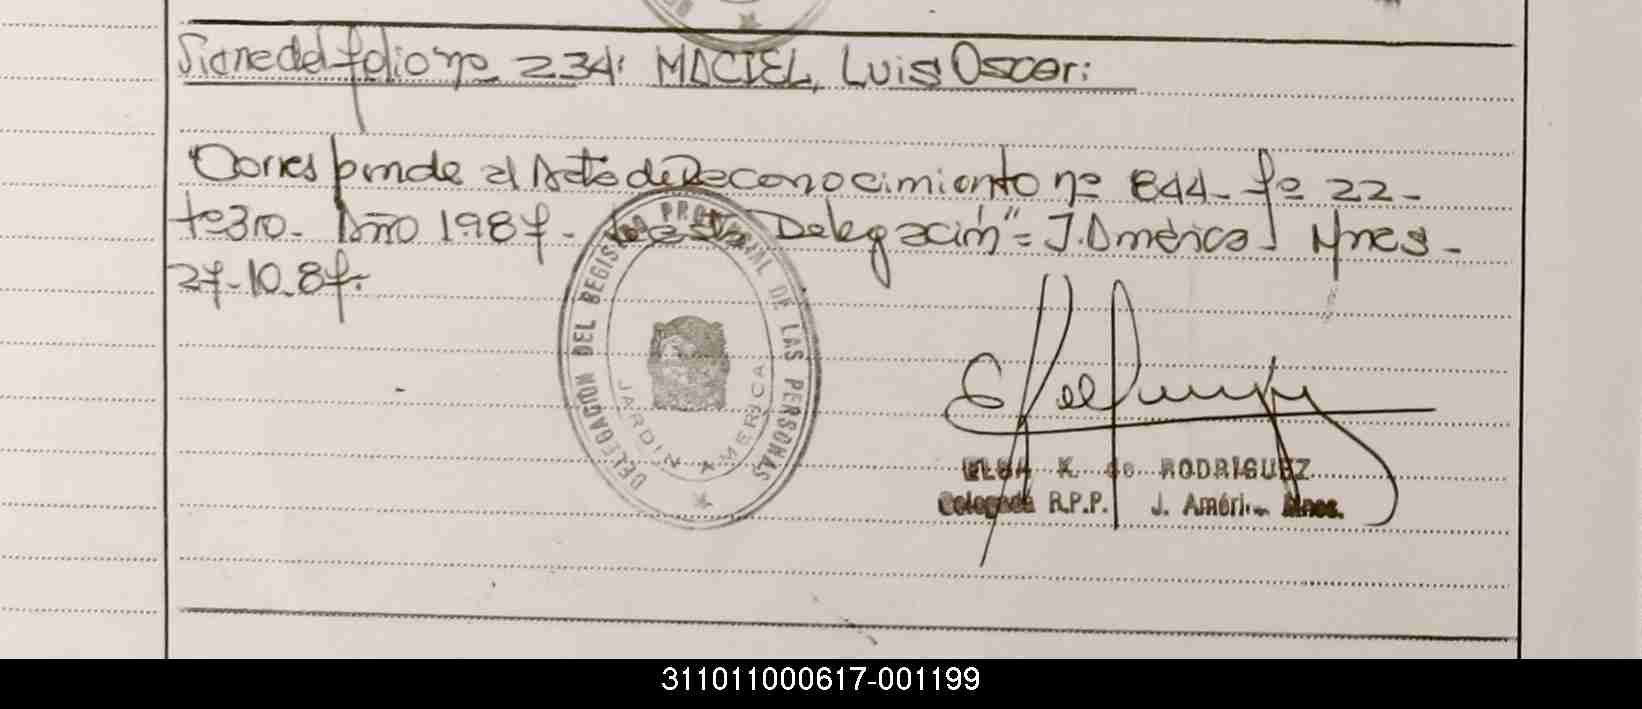 Signe del folio nº 234: MACIEL, Luis Oscar:
Corresponde al Acta de Reconocimiento nº 844- fº 22-
tº 3ro- Año 1987- de esta Delegación "= J. América- Mnes-
27-10-87-
DELEGACION DEL REGISTRO PROVINCIAL DE LAS PERSONAS
JARDIN AMERICA
ELSA K. de RODRIGUEZ
Delegada R.P.P. J. América Mnes.
311011000617-001199